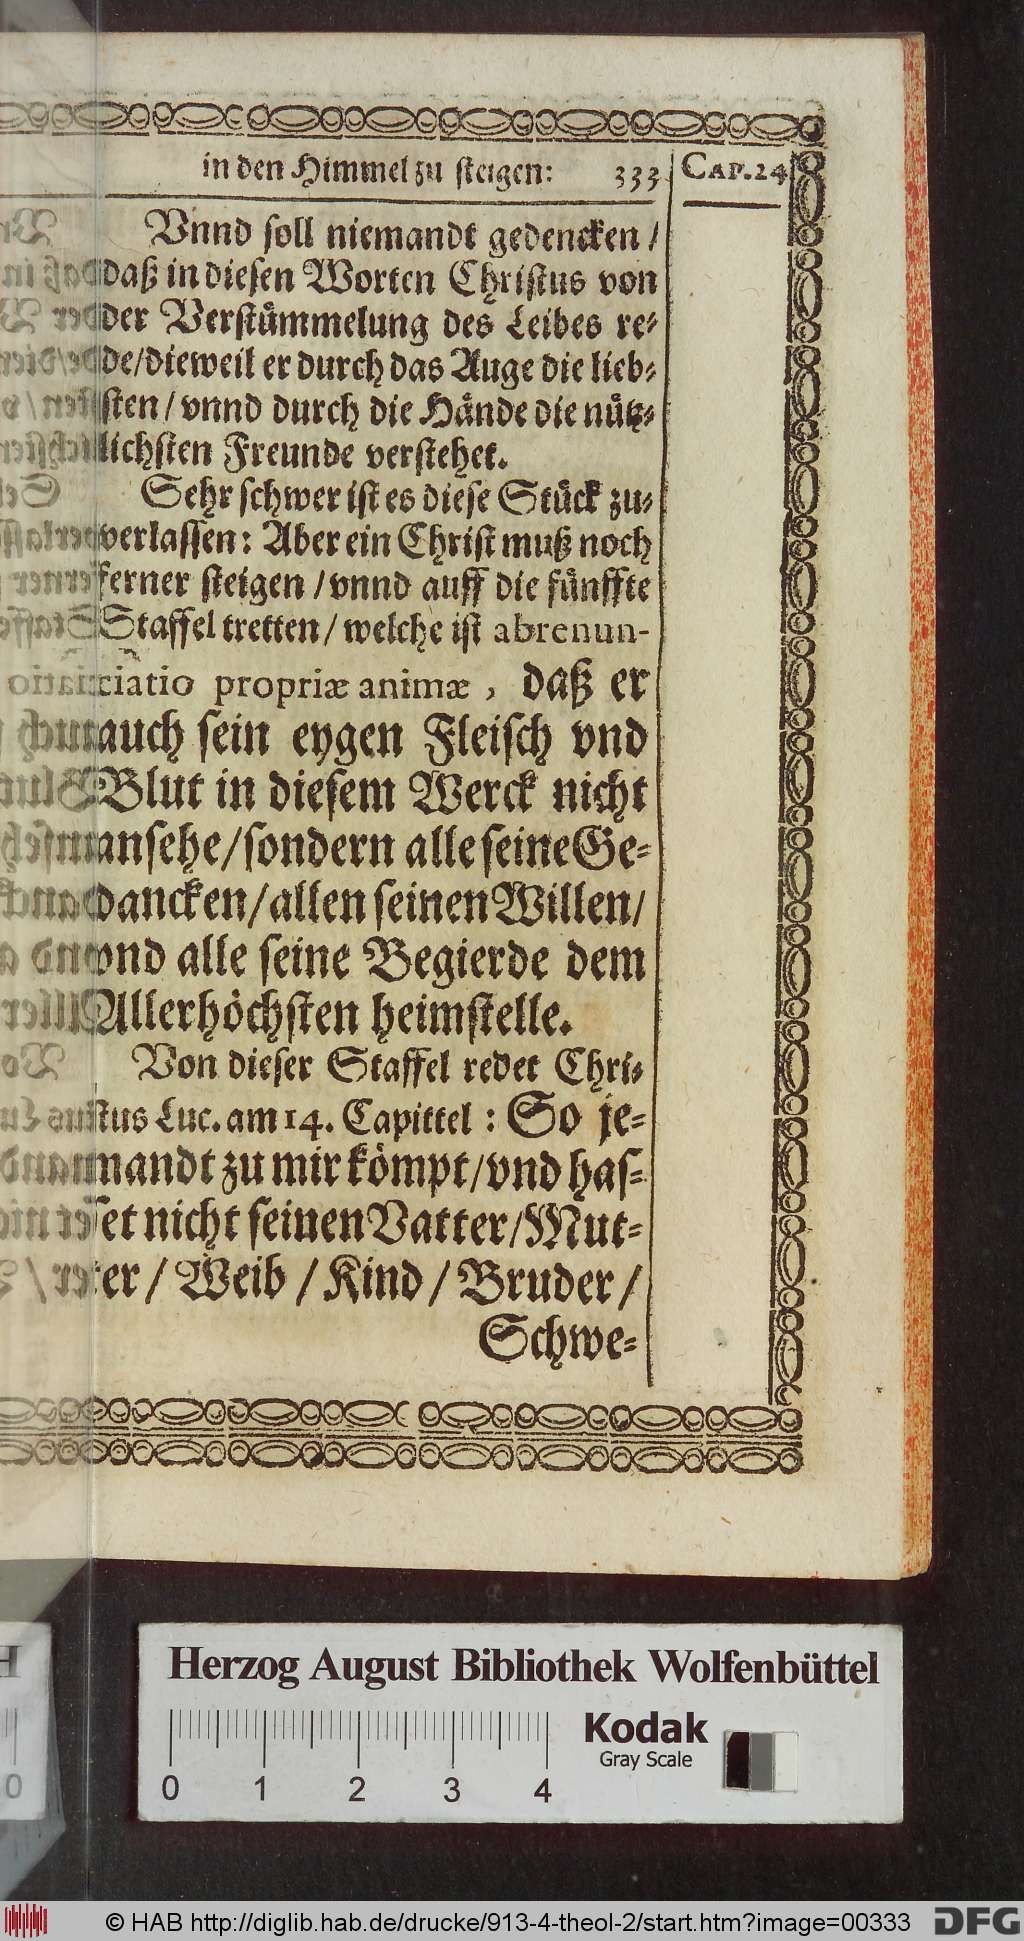 in den Himmel zu steigen: 333
Cap. 24
Vnnd soll niemandt gedencken /
daß in diesen Worten Christus von
der Verstümmelung des Leibes re-
de/dieweil er durch das Auge die lieb-
sten / vnnd durch die Hände die nütz-
lichsten Freunde verstehet.
Sehr schwer ist es diese Stück zu-
verlassen: Aber ein Christ muß noch
ferner steigen / vnnd auff die fünffte
Staffel tretten / welche ist abrenun-
ciatio propriæ animæ, daß er
auch sein eygen Fleisch vnd
Blut in diesem Werck nicht
ansehe/sondern alle seine Ge-
dancken/allen seinen Willen/
vnd alle seine Begierde dem
Allerhöchsten heimstelle.
Von dieser Staffel redet Chri-
stus Luc. am 14. Capittel : So je-
mandt zu mir kömpt/vnd has-
set nicht seinen Vatter/Mut-
ter / Weib / Kind / Bruder /
Schwe-
Herzog August Bibliothek Wolfenbüttel
Kodak
Gray Scale
0 1 2 3 4
© HAB http://diglib.hab.de/drucke/913-4-theol-2/start.htm?image=00333
DFG